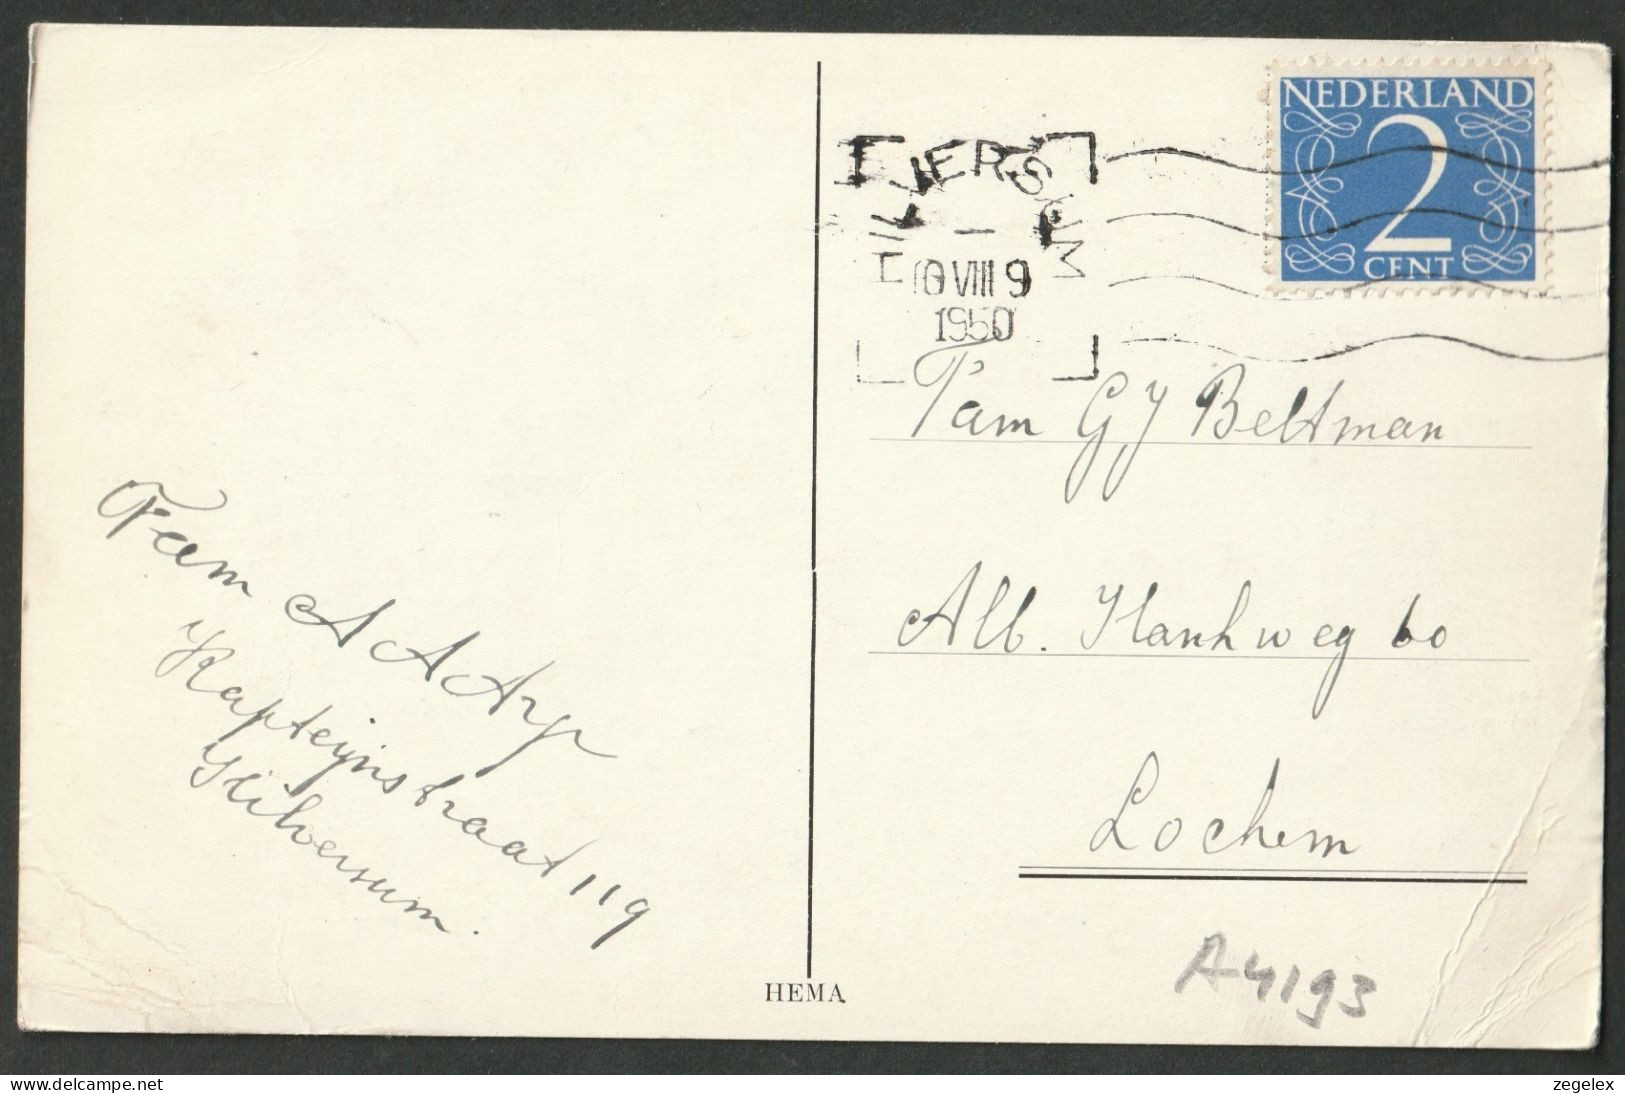 NEDERLAND
2
CENT
HILVERSUM
10 VIII 9
1950
Fam G J Beltman
Alb. Hahnweg 60
Lochem
Fam A A Arp
Kapteijnstraat 119
Hilversum.
HEMA
A4193
delcampe.net
zegelex